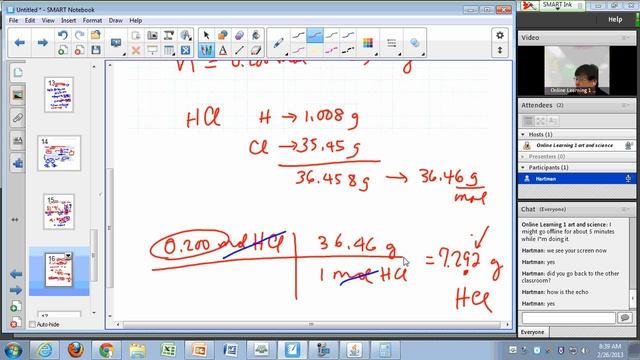 Untitled * - SMART Notebook
SMART Ink
File Edit View Insert Format Tools Add-ons Help
13
14
15
16
17
Auto-hide
n = 0.200 mol → g
HCl H → 1.008 g
Cl → 35.45 g
36.458 g → 36.46 g
mol
0.200 mol HCl 36.46 g
1 mol HCl
= 7.292 g
HCl
Video
Online Learning 1
Attendees
Hosts (1)
Online Learning 1 art and science
Presenters (0)
Participants (1)
Hartman
Chat
Online Learning 1 art and science: I
might go offline for about 5 minutes
while I"m doing it.
Hartman: yes
Online Learning 1 art and science:
we see your screen now
Hartman: yes
Online Learning 1 art and science:
did you go back to the other
classroom?
Hartman: yes
Hartman: how is the echo
Hartman: yes
Everyone
8:39 AM
2/26/2013